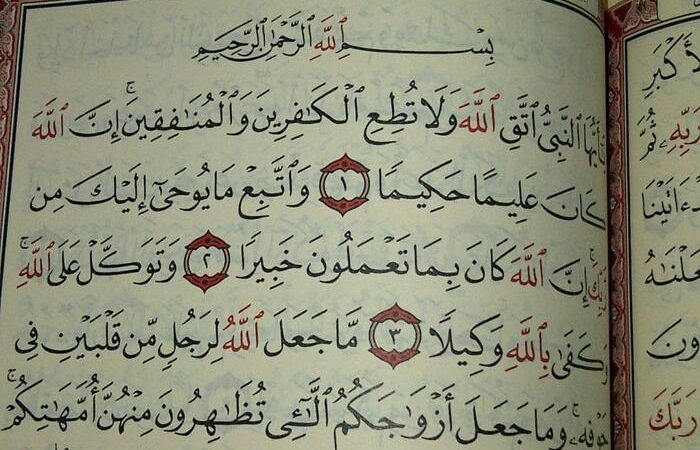 بِسْمِ ٱللَّهِ ٱلرَّحْمَٰنِ ٱلرَّحِيمِ
يَٰٓأَيُّهَا ٱلنَّبِىُّ ٱتَّقِ ٱللَّهَ وَلَا تُطِعِ ٱلْكَٰفِرِينَ وَٱلْمُنَٰفِقِينَ ۚ إِنَّ ٱللَّهَ
كَانَ عَلِيمًا حَكِيمًا ١ وَٱتَّبِعْ مَا يُوحَىٰٓ إِلَيْكَ مِن
رَّبِّكَ ۚ إِنَّ ٱللَّهَ كَانَ بِمَا تَعْمَلُونَ خَبِيرًا ٢ وَتَوَكَّلْ عَلَى ٱللَّهِ ۚ
وَكَفَىٰ بِٱللَّهِ وَكِيلًا ٣ مَّا جَعَلَ ٱللَّهُ لِرَجُلٍ مِّن قَلْبَيْنِ فِى
جَوْفِهِۦ ۚ وَمَا جَعَلَ أَزْوَٰجَكُمُ ٱلَّٰٓـِٔى تُظَٰهِرُونَ مِنْهُنَّ أُمَّهَٰتِكُمْ ۚ
أَكْبَرِ
رَبِّهِۦ ثُمَّ
ءَاتَيْنَا
رَبِّكَ